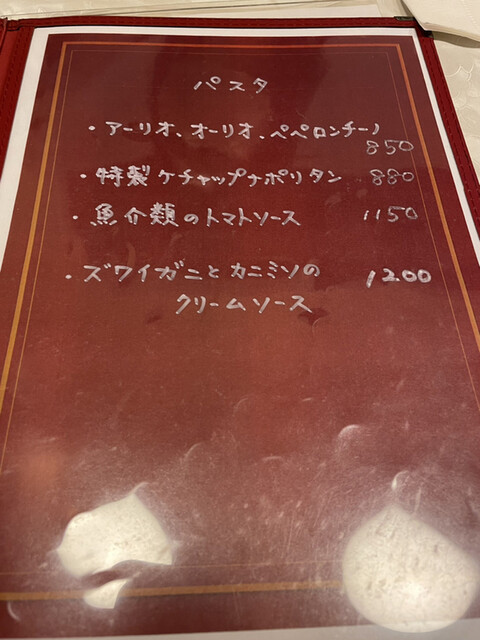 パスタ
・アーリオ、オーリオ、ペペロンチーノ
850
・特製ケチャップナポリタン 880
・魚介類のトマトソース 1150
・ズワイガニとカニミソの 1200
クリームソース